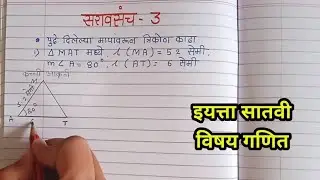 सरावसंच - 3
* पुढे दिलेल्या मापावरून त्रिकोण काढा
1) △ MAT मध्ये, l (MA) = 5.2 सेमी,
m∠A = 80°, l (AT) = 6 सेमी
कच्ची आकृती
M
5.2 सेमी
80°
A
T
इयत्ता सातवी
विषय गणित